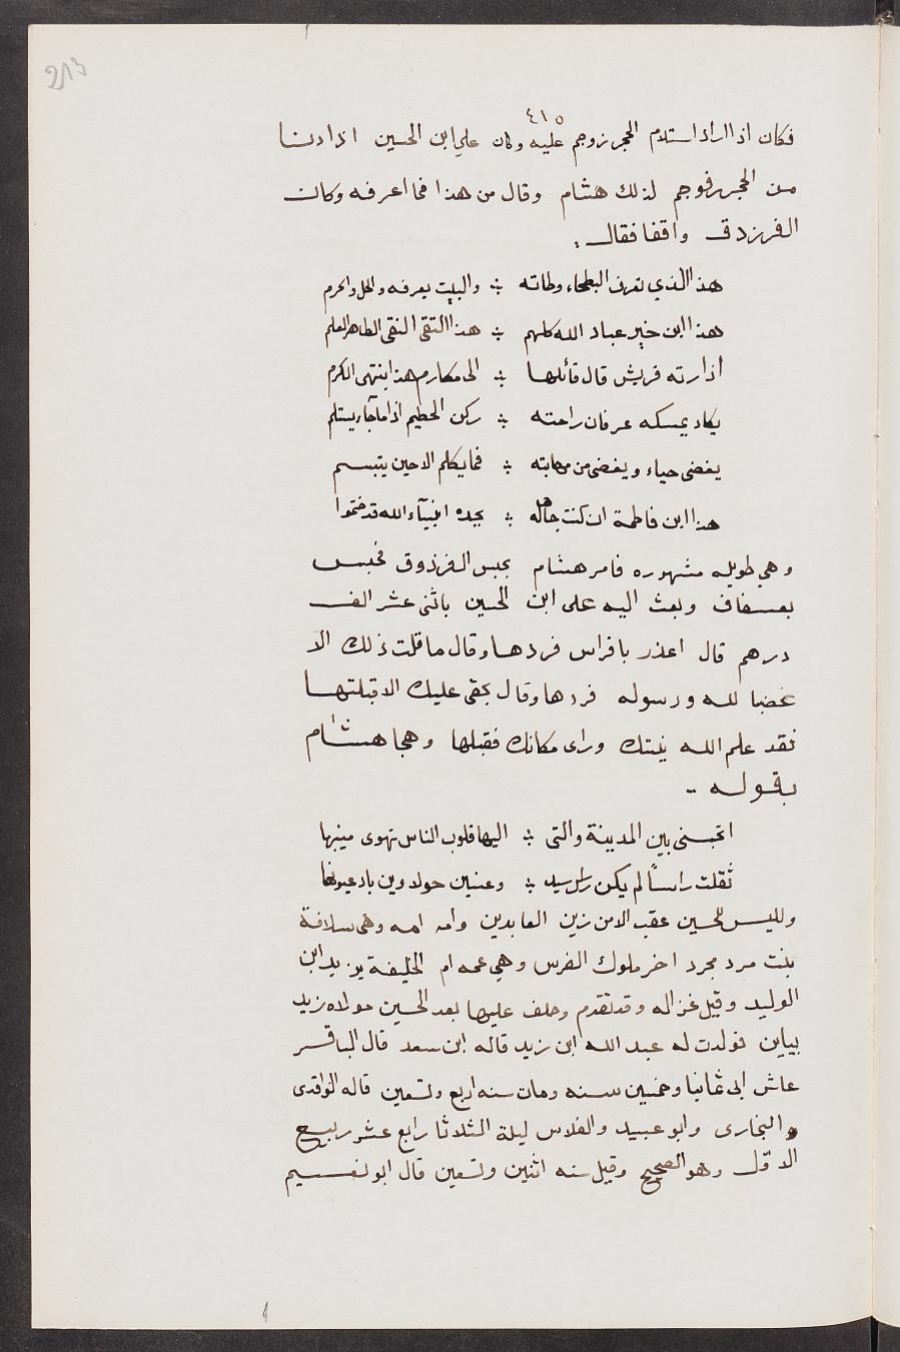 213
٤١٥
فكان اذا اراد استلام الحجر زوجم عليه وكان علي ابن الحسين اذا دنا
من الحجر رفوجم لذلك هشام وقال من هذا فما اعرفه وكان
الفرزدق واقفا فقال :
هذا الذي تعرف البطحاء وطاته ؞ والبيت يعرفه والحل والحرم
هذا ابن خير عباد الله كلهم ؞ هذا التقى النقى الطاهر العلم
اذا رته قريش قال قائلها ؞ الى مكارم هذا ينتهى الكرم
يكاد يمسكه عرفان راحته ؞ ركن الحطيم اذا ما جآء يستلم
يغضى حياء ويغضى من مهابته ؞ فما يكلم الا حين يبتسم
هذا ابن فاطمة ان كنت جاهله ؞ بجده انبيآء الله قد ختموا
وهي طويله مشهوره فامر هشام بحبس الفرذوق فحبس
بعسفاف وبعث اليه على ابن الحسين باثنى عشر الف
درهم قال اعذر بافراس فردها وقال ما قلت ذلك الا
غضبا لله ورسوله فردها وقال بحقى عليك الا قبلتها
فقد علم الله نيتك وراى مكانك فقبلها وهجا هشام
بقوله ..
اتحبسنى بين المدينة والتى ؞ اليها قلوب الناس تهوى منيبها
ثقلت راساً لم يكن راس سيد ؞ وعينين حولاوين باد عيوبها
وليس للحسين عقب الا من زين العابدين وامه امه وهى سلافة
بنت مرد مجرد اخر ملوك الفرس وهي عمه ام الخليفة يزيد ابن
الوليد وقيل غزاله وقد تقدم وخلف عليها بعد الحسين مولاه زيد
بياين فولدت له عبد الله ابن زيد قاله ابن سعد قال الباقر
عاش ابى ثمانيا وخمسين سنه ومات سنه اربع وتسعين قاله الواقدى
والبخارى وابو عبيد والفلاس ليلة الثلاثا رابع عشر ربيع
الاوّل وهو الصحيح وقيل سنه اثنين وتسعين قال ابو نعسيم